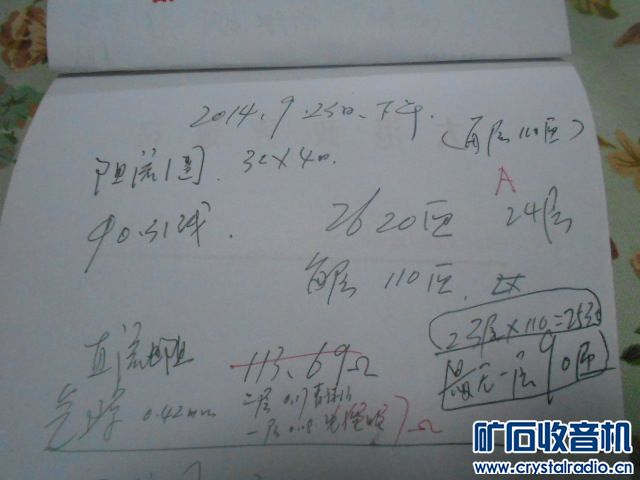 2014.9.25日.下午.
(每层110匝)
阻流圈. 32×40.
A
φ0.31线.
2620匝 24层
每层 110匝.
23层×110=2530
直流电阻 113.69Ω
最后一层 90匝
气隙 0.42mm
二层 0.17
一层 0.08
Ω
矿石收音机
www.crystalradio.cn